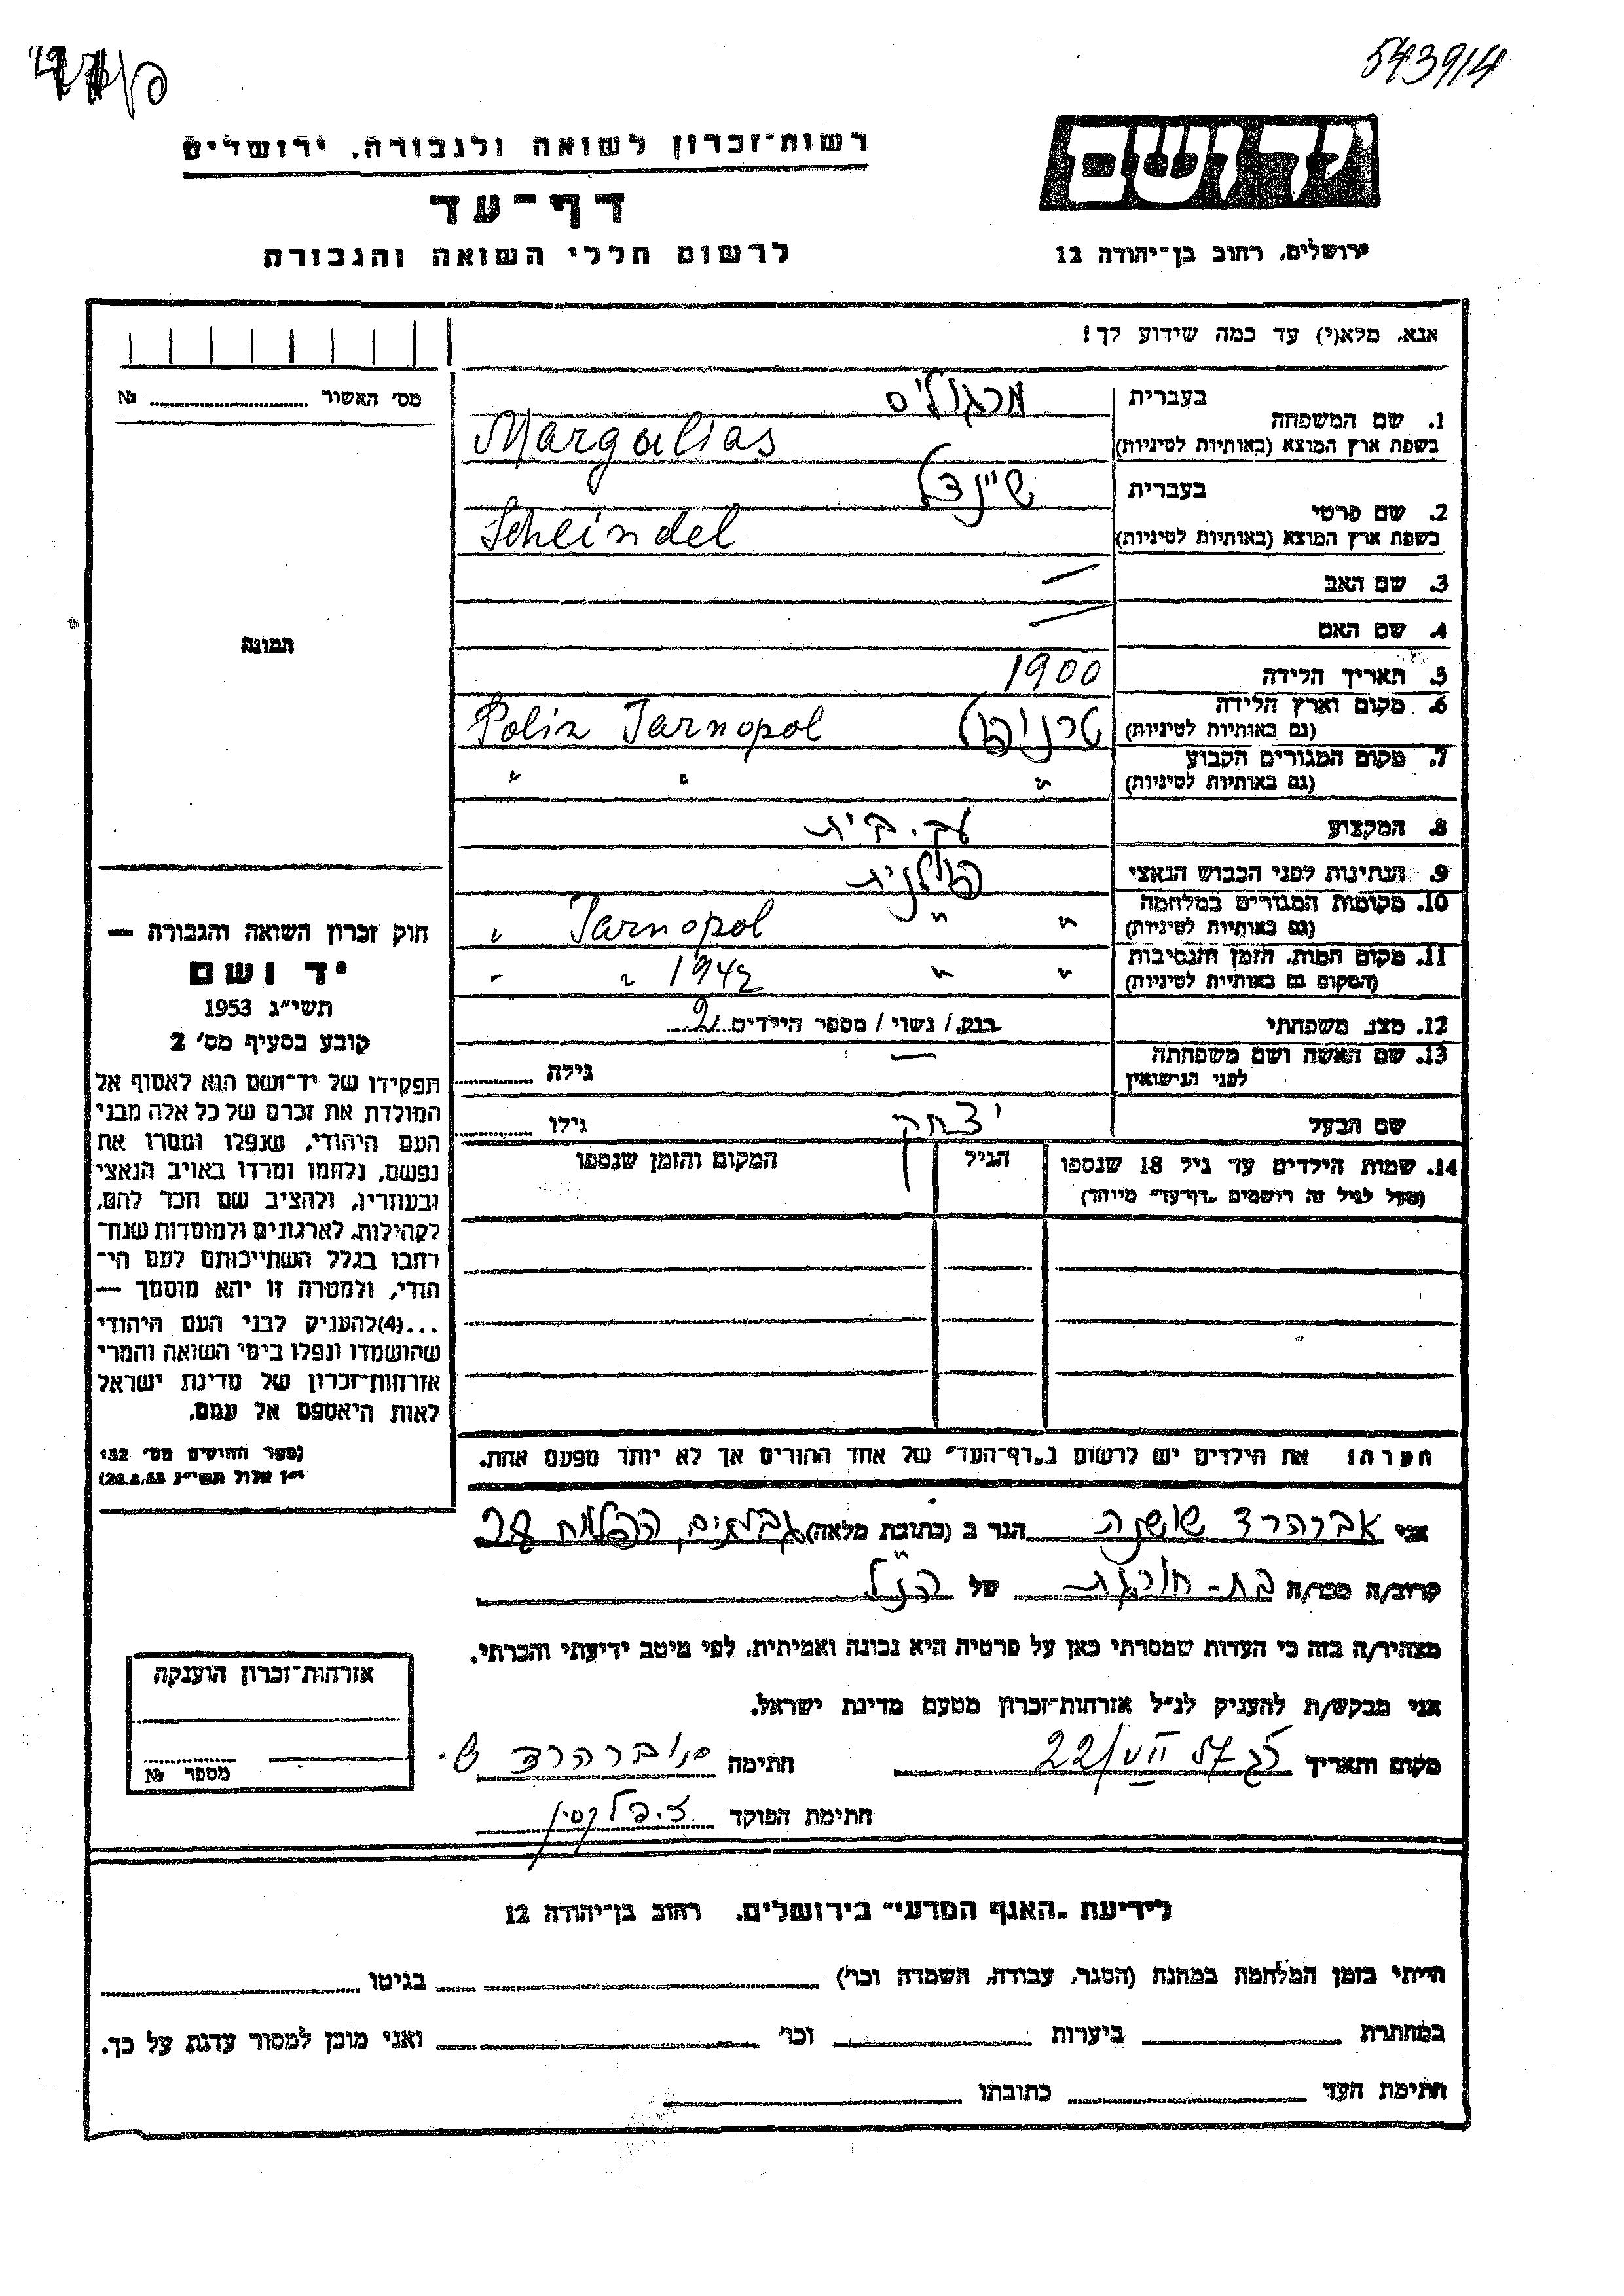 543914
רשות־זכרון לשואה ולגבורה, ירושלים
יד ושם
דף־עד
לרשום חללי השואה והגבורה
ירושלים, רחוב בן־יהודה 12
אנא, מלא(י) עד כמה שידוע לך!
מס׳ האשור № 
1. שם המשפחה
בעברית מרגוליס
בשפת ארץ המוצא (באותיות לטיניות) Margalias
2. שם פרטי
בעברית שיינדל
בשפת ארץ המוצא (באותיות לטיניות) Scheindel
3. שם האב —
4. שם האם —
5. תאריך הלידה 1900
6. מקום וארץ הלידה טרנופול Polin Tarnopol
(גם באותיות לטיניות)
7. מקום המגורים הקבוע " " "
(גם באותיות לטיניות)
8. המקצוע עק. בית
9. הנתינות לפני הכבוש הנאצי פולנית
10. מקומות המגורים במלחמה " " Tarnopol "
(גם באותיות לטיניות)
11. מקום המות, הזמן והנסיבות " " 1942 " "
(המקום גם באותיות לטיניות)
12. מצב משפחתי רווק / נשוי / מספר הילדים 2
13. שם האשה ושם משפחתה — גילה
לפני הנישואין
שם הבעל יצחק גילו
14. שמות הילדים עד גיל 18 שנספו הגיל המקום והזמן שנספו
(מעל לגיל זה רושמים „דף־עד״ מיוחד)
תמונה
חוק זכרון השואה והגבורה —
יד ושם
תשי״ג 1953
קובע בסעיף מס׳ 2
תפקידו של יד־ושם הוא לאסוף אל
המולדת את זכרם של כל אלה מבני
העם היהודי, שנפלו ומסרו את
נפשם, נלחמו ומרדו באויב הנאצי
ובעוזריו, ולהציב שם וזכר להם,
לקהילות, לארגונים ולמוסדות שנח־
רבו בגלל השתייכותם לעם הי־
הודי, ולמטרה זו יהא מוסמך —
...(4)להעניק לבני העם היהודי
שהושמדו ונפלו בימי השואה והמרי
אזרחות־זכרון של מדינת ישראל
לאות היאספם אל עמם.
(ספר החוקים מס׳ 132
י״ז אלול תשי״ג 28.8.53)
הערה: את הילדים יש לרשום ב„דף־העד״ של אחד ההורים אך לא יותר מפעם אחת.
אני אברהרד שושנה הגר ב (כתובת מלאה) גבעתיים, הפלוח 28
קרוב/ה מכר/ה בת-חורגת של הנ״ל
מצהיר/ה בזה כי העדות שמסרתי כאן על פרטיה היא נכונה ואמיתית, לפי מיטב ידיעתי והכרתי.
אני מבקש/ת להעניק לנ״ל אזרחות־זכרון מטעם מדינת ישראל.
מקום ותאריך ר״ג 22/VII 57 חתימה אוברהרד ש.
חתימת הפוקד
אזרחות־זכרון הוענקה
מספר №
לידיעת „האגף המדעי״ בירושלים, רחוב בן־יהודה 12
הייתי בזמן המלחמה במחנה (הסגר, עבודה, השמדה וכו׳) בגיטו
במחתרת ביערות וכו׳ ואני מוכן למסור עדות על כך.
חתימת העד כתובתו